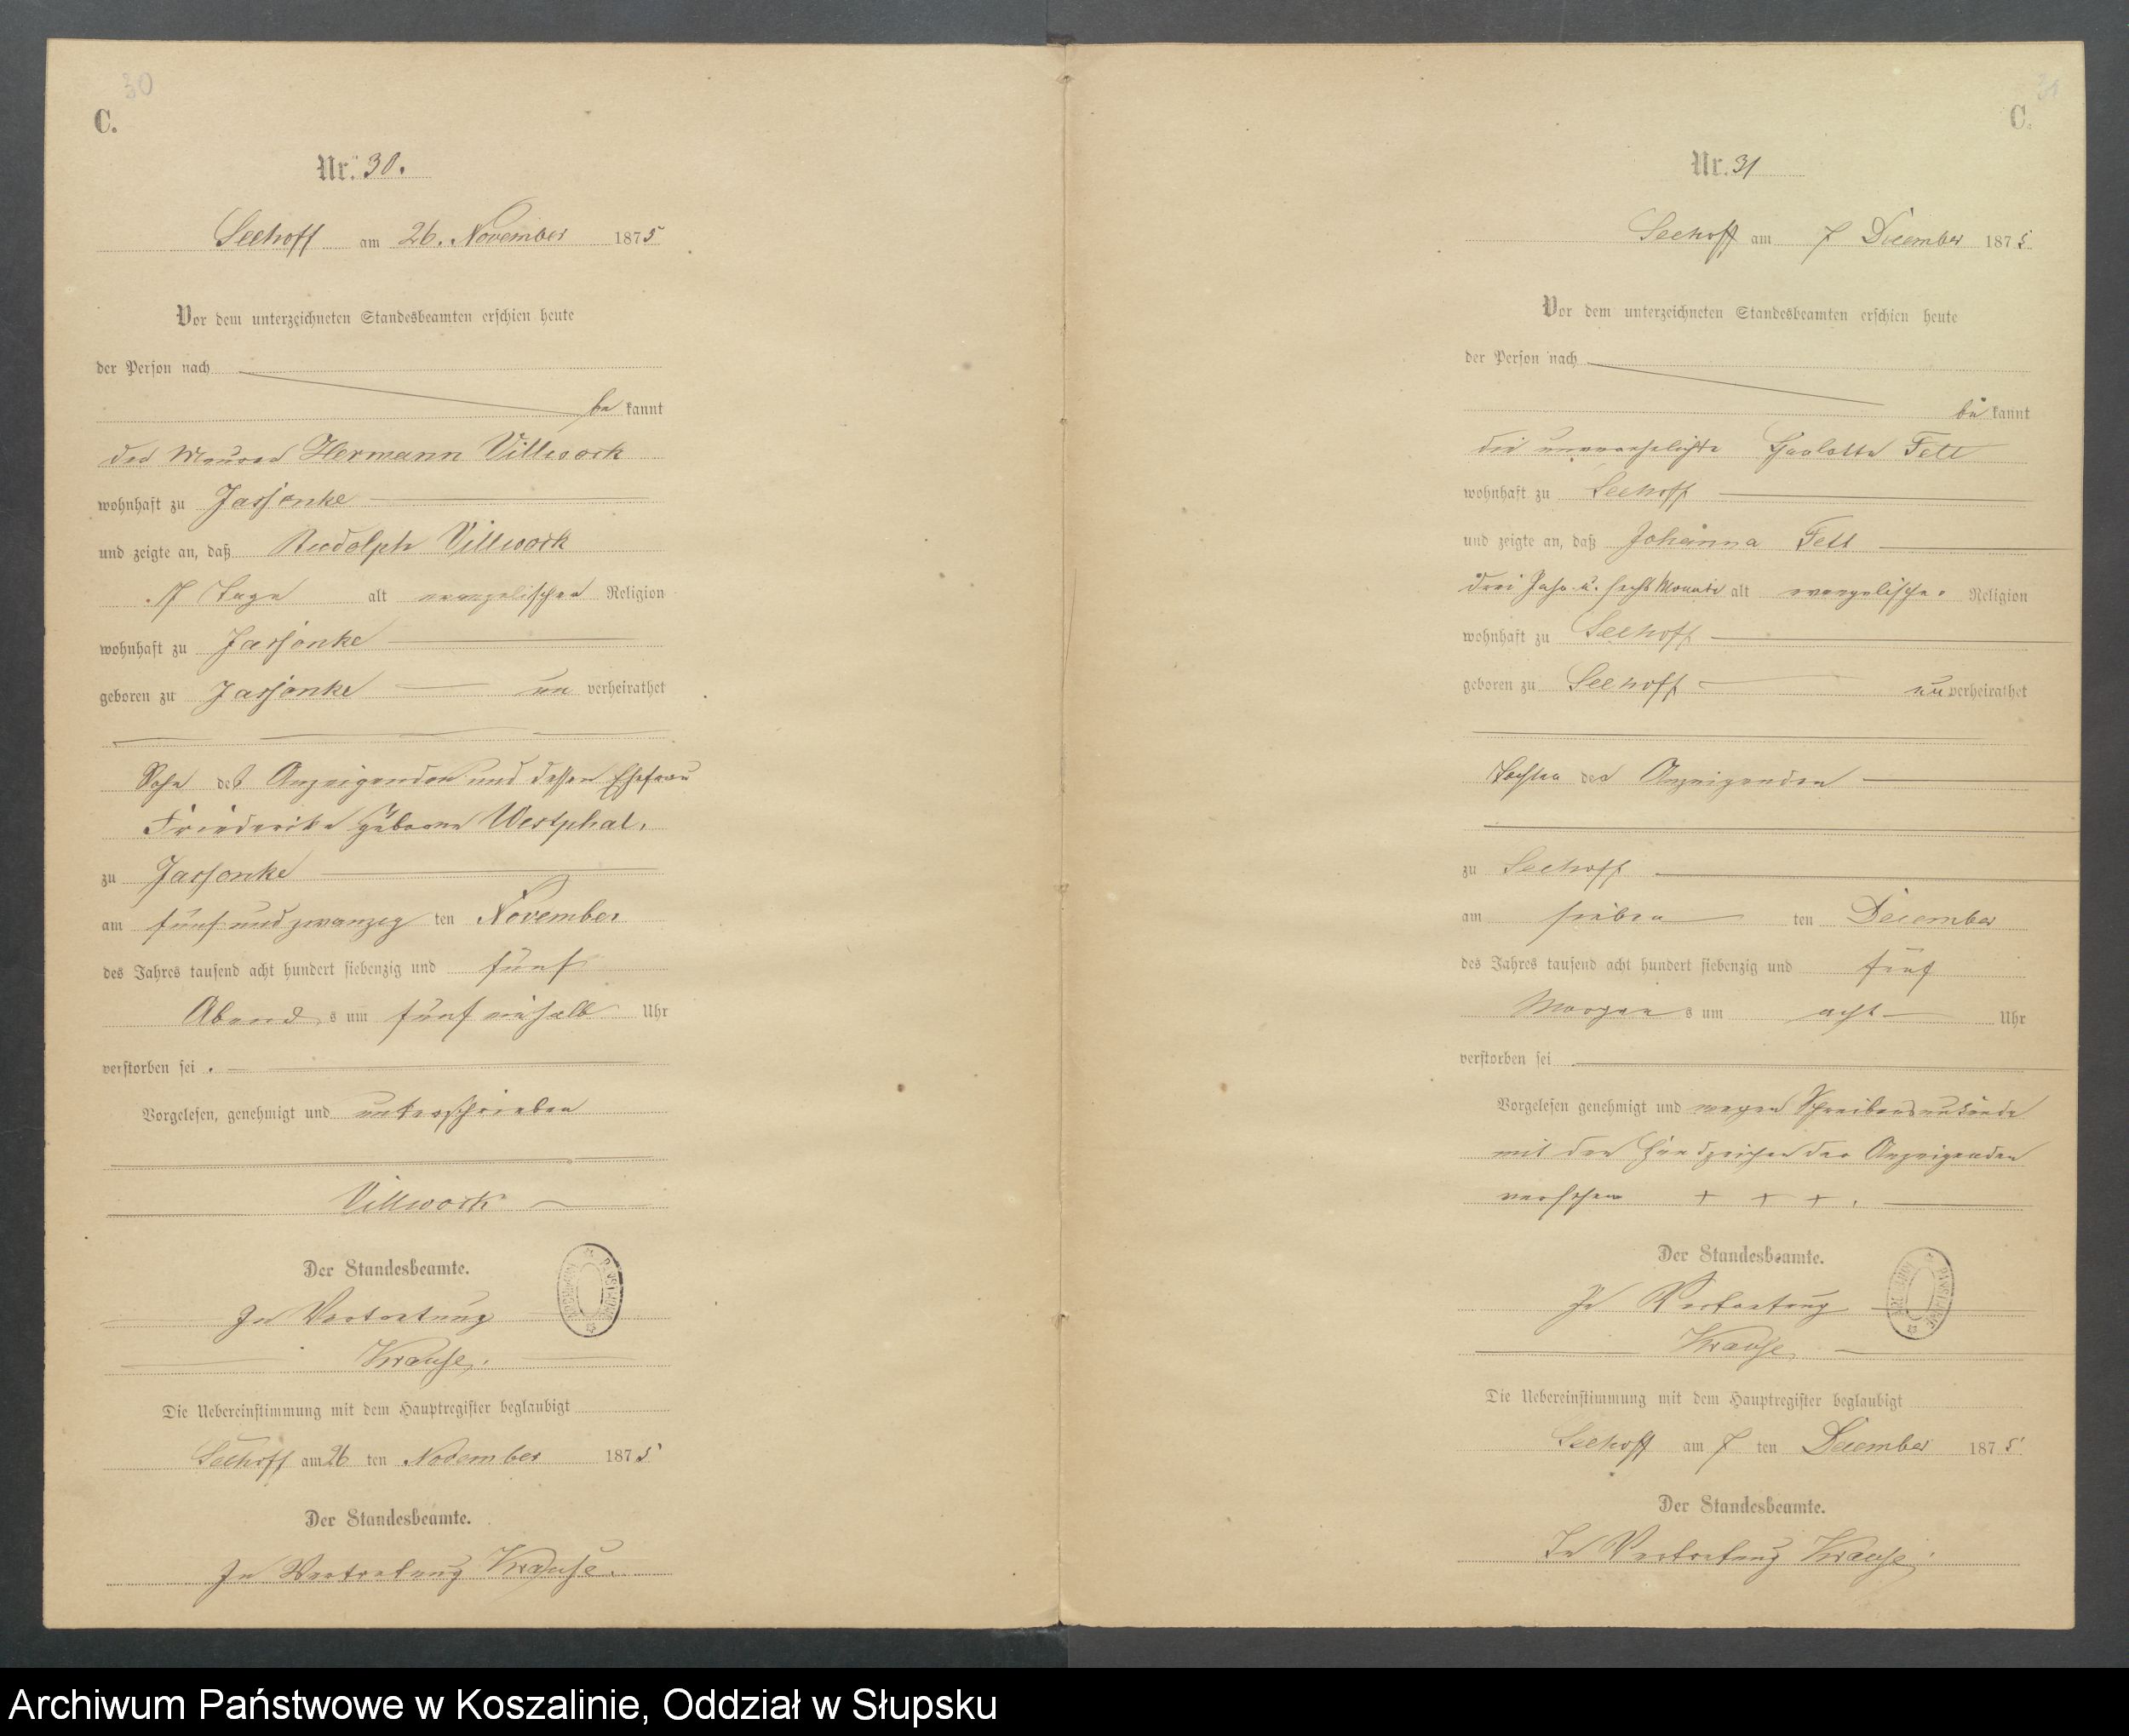 30
C.
Nr. 30.
Seehoff am 26. November 1875
Vor dem unterzeichneten Standesbeamten erschien heute
der Person nach
be kannt
der Maurer Hermann Villwock
wohnhaft zu Jassonke
und zeigte an, daß Rudolph Villwock
7 Tage alt evangelischer Religion
wohnhaft zu Jassonke
geboren zu Jassonke un verheirathet
Sohn des Anzeigenden und dessen Ehefrau
Friederike geborne Westphal.
zu Jassonke
am fünf und zwanzig ten November
des Jahres tausend acht hundert siebenzig und fünf
Abend s um fünf einhalb Uhr
verstorben sei.
Vorgelesen, genehmigt und unterschrieben
Villwock
Der Standesbeamte.
In Vertretung
Krause.
Die Uebereinstimmung mit dem Hauptregister beglaubigt
Seehoff am 26 ten November 1875
Der Standesbeamte.
In Vertretung Krause.
31
C.
Nr. 31
Seehoff am 7 December 1875
Vor dem unterzeichneten Standesbeamten erschien heute
der Person nach
be kannt
die unverehelichte Charlotte Fett
wohnhaft zu Seehoff
und zeigte an, daß Johanna Fett
drei Jahr u. sechs Monate alt evangelischer Religion
wohnhaft zu Seehoff
geboren zu Seehoff un verheirathet
Tochter der Anzeigenden
zu Seehoff
am sieben ten December
des Jahres tausend acht hundert siebenzig und fünf
Morgen s um acht Uhr
verstorben sei
Vorgelesen genehmigt und wegen Schreibensunkunde
mit den Handzeichen der Anzeigenden
versehen + + +.
Der Standesbeamte.
In Vertretung
Krause
Die Uebereinstimmung mit dem Hauptregister beglaubigt
Seehoff am 7 ten December 1875
Der Standesbeamte.
In Vertretung Krause
Archiwum Państwowe w Koszalinie, Oddział w Słupsku